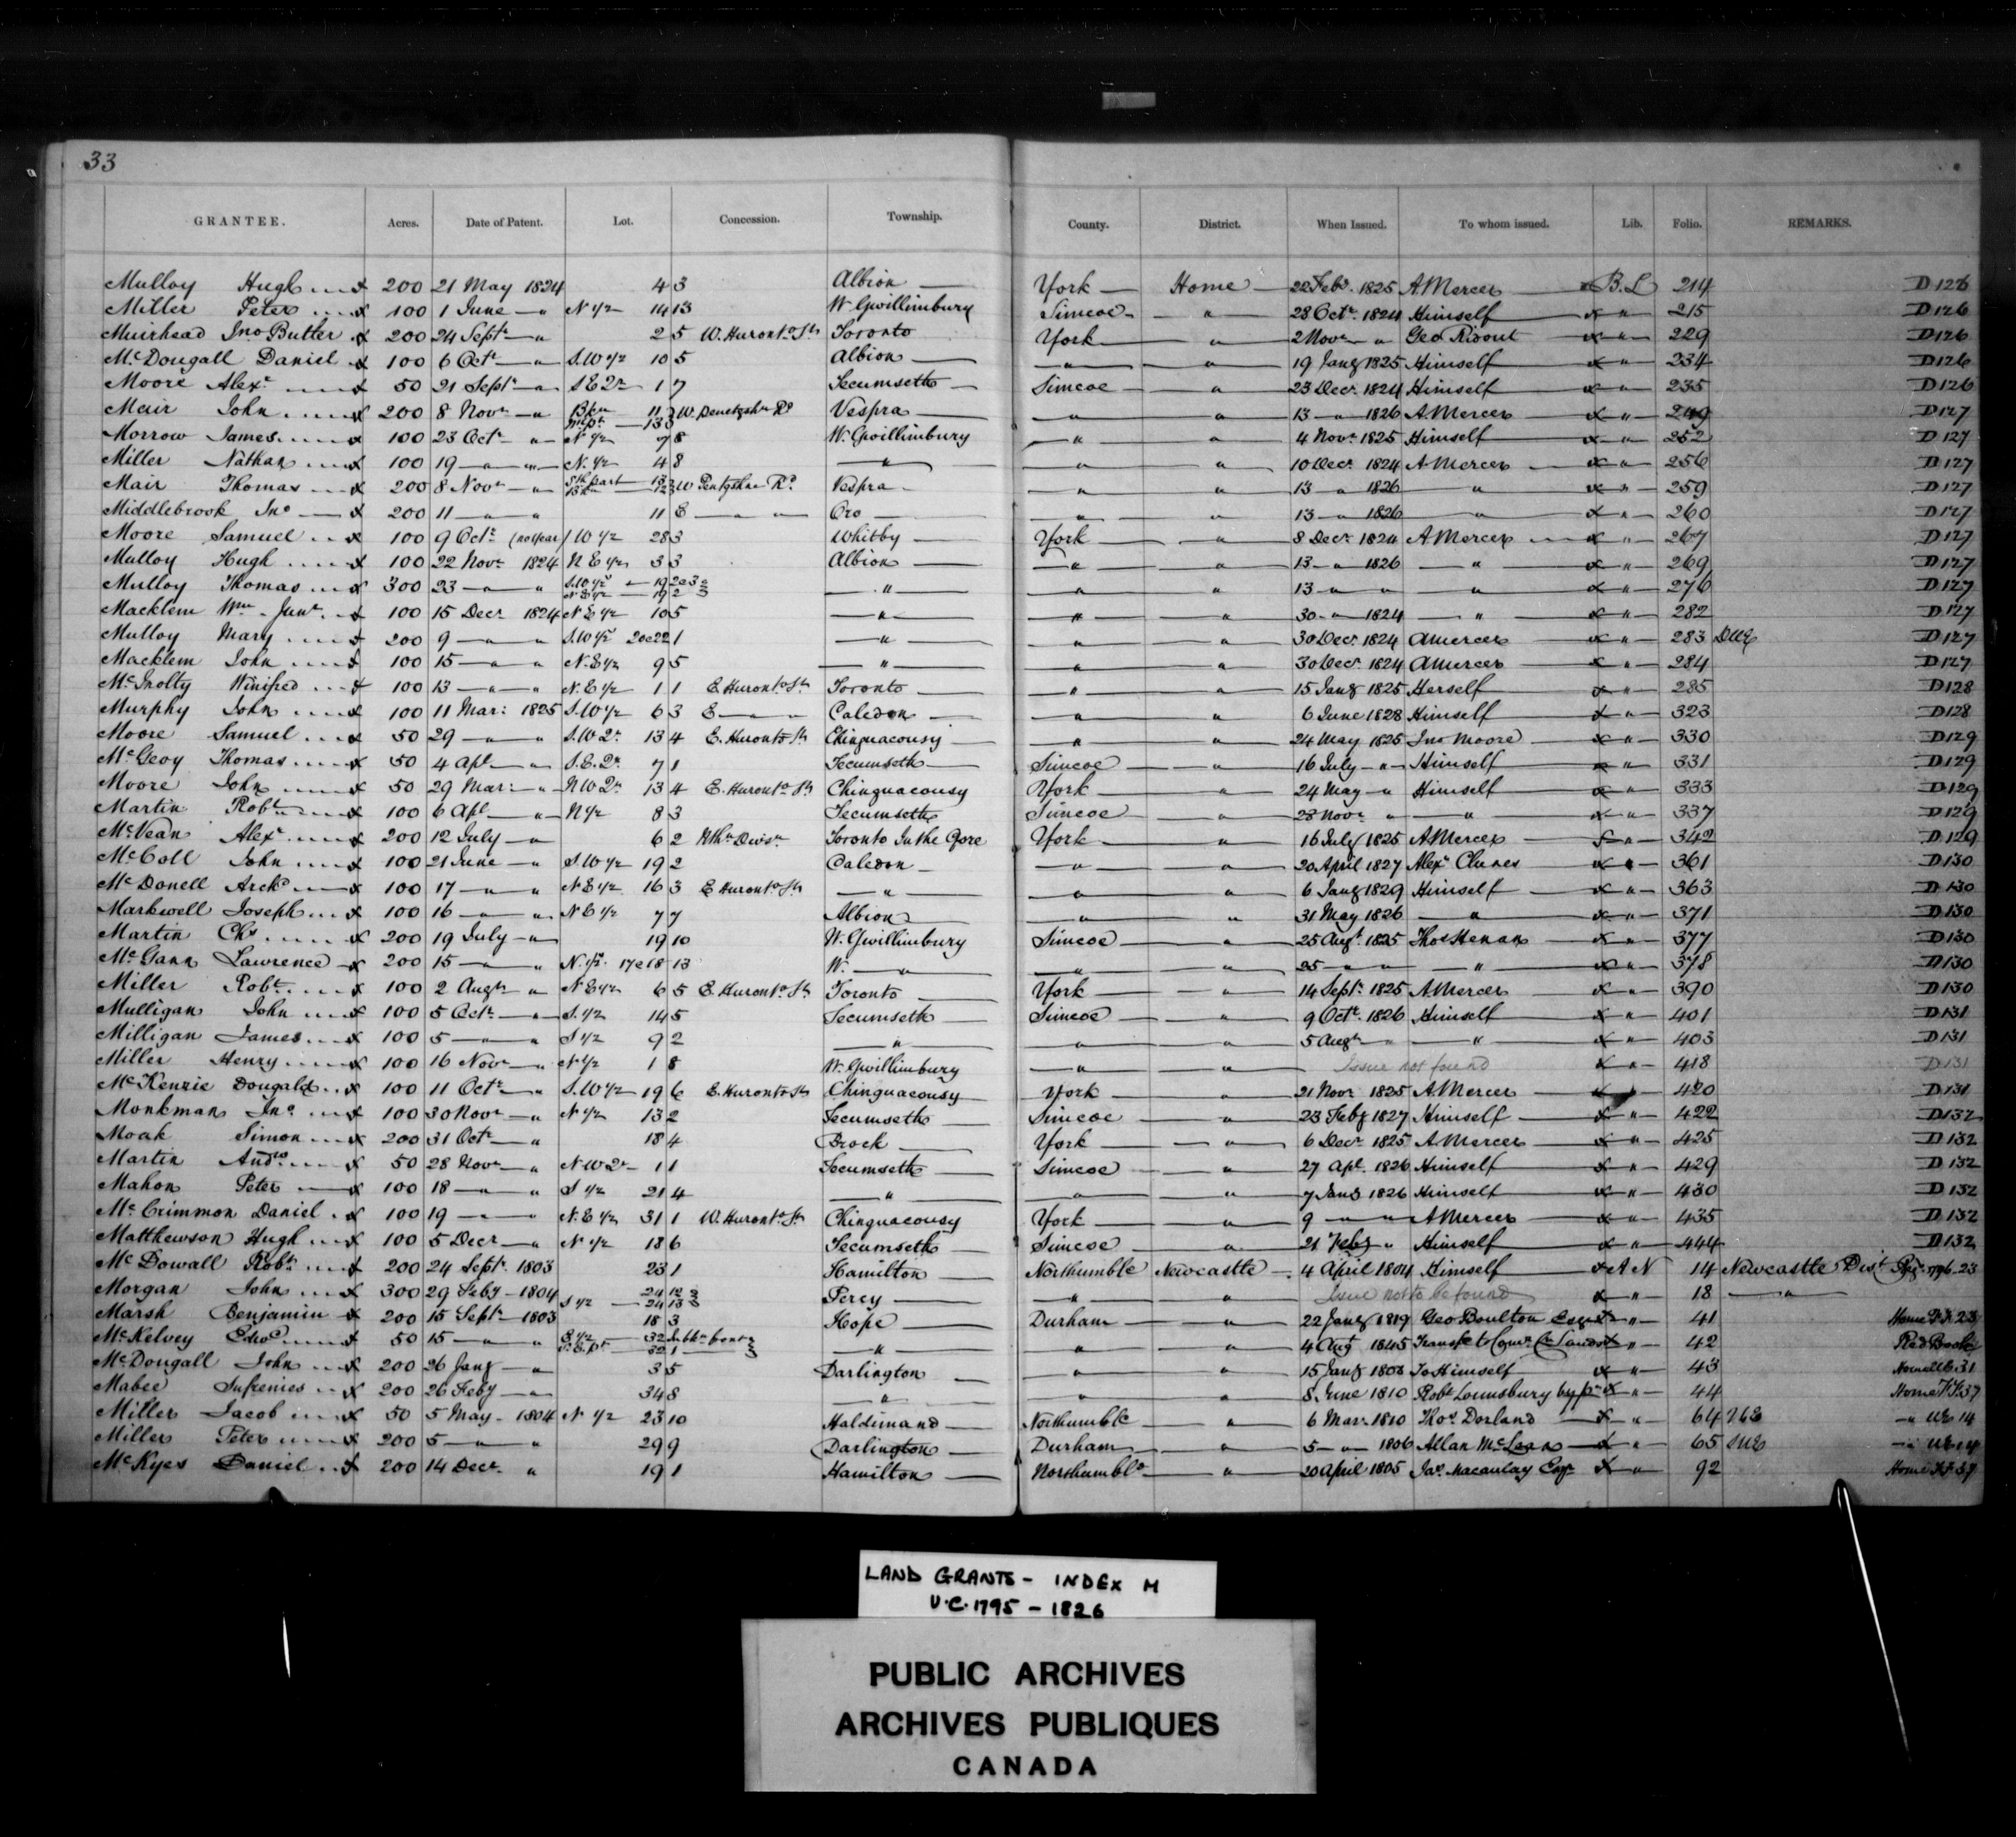 33
GRANTEE. Acres. Date of Patent. Lot. Concession. Township. County. District. When Issued. To whom issued. Lib. Folio. REMARKS.
Mulloy Hugh 200 21 May 1824 4 3 Albion York Home 22 Feby. 1825 A Mercer B.L 214 D 126
Miller Peter 100 1 June " N 1/2 14 13 W. Gwillimbury Simcoe " 28 Octr. 1824 Himself " 215 D 126
Muirhead Jno Butler 200 24 Septr " 2 5 W. Huronto St Toronto York " 2 Novr " Geo Ridout " 229 D 126
McDougall Daniel 100 6 Octr " S.W 1/2 10 5 Albion " " 19 Jany 1825 Himself " 234 D 126
Moore Alexr 50 21 Septr " S E 2r 1 7 Tecumseth Simcoe " 23 Decr 1824 Himself " 235 D 126
Mair John 200 8 Novr " Bkn 11 13 W. Penetgshn Rd Vespra " " 13 " 1826 A Mercer " 249 D 127
Morrow James 100 23 Octr " N 1/2 7 8 W. Gwillimbury " " 4 Novr 1825 Himself " 252 D 127
Miller Nathan 100 19 " " N. 1/2 4 8 " " " 10 Decr 1824 A Mercer " 256 D 127
Mair Thomas 200 8 Novr " W Pentgshn Rd Vespra " " 13 " 1826 " " 259 D 127
Middlebrook Jno 200 11 " " 11 E " " Oro " " 13 " 1826 " " 260 D 127
Moore Samuel 100 9 Octr (no year) W 1/2 28 3 Whitby York " 8 Decr 1824 A Mercer " 267 D 127
Mulloy Hugh 100 22 Novr 1824 N E 1/2 3 3 Albion " " 13 " 1826 " " 269 D 127
Mulloy Thomas 300 23 " " S.W 1/2 19 2 & 3 N E 1/2 19 2 " " " 13 " " " " 276 D 127
Macklem Wm Junr 100 15 Decr 1824 N E 1/2 10 5 " " " 30 " 1824 " " 282 D 127
Mulloy Mary 200 9 " " S.W 1/2 20 & 22 1 " " " 30 Decr 1824 A Mercer " 283 D 127
Macklem John 100 15 " " N. E 1/2 9 5 " " " 30 Decr 1824 A Mercer " 284 D 127
Winifred 100 13 " " N. E 1/2 1 1 E Huronto St Toronto " " 15 Jany 1825 Herself " 285 D 128
Murphy John 100 11 Mar: 1825 S.W 1/2 6 3 E " Caledon " " 6 June 1828 Himself " 323 D 128
Moore Samuel 50 29 " " S.W 2r 13 4 E. Huronto St Chinguacousy " " 24 May 1825 Jno Moore " 330 D 129
McGevy Thomas 50 4 Apl " S. E. 2r 7 1 Tecumseth Simcoe " 16 July " Himself " 331 D 129
Moore John 50 29 Mar: " N W 2r 13 4 E. Huronto St Chinguacousy York " 24 May " Himself " 333 D 129
Martin Robt 100 6 Apl " N 1/2 8 3 Tecumseth Simcoe " 28 Novr " " " 337 D 129
McVean Alexr 200 12 July " 6 2 Nthn Divisn Toronto In the Gore York " 16 July 1825 A Mercer " 342 D 129
McColl John 100 21 June " S.W 1/2 19 2 Caledon " " 20 April 1827 Alexr " 361 D 130
McDonell Archd 100 17 " " N E 1/2 16 3 E Huronto St " " " 6 Jany 1829 Himself " 363 D 130
Markwell Joseph 100 16 " " N E 1/2 7 7 Albion " " 31 May 1826 " " 371 D 130
Martin Chs 200 19 July " 19 10 W. Gwillimbury Simcoe " 25 Augt 1825 Thos Henan " 377 D 130
McGann Lawrence 200 15 " " N. 1/2 17 & 18 13 W. " " " 25 " " " " 378 D 130
Miller Robt 100 2 Augt " N E 1/2 6 5 E. Huronto St Toronto York " 14 Septr 1825 A Mercer " 390 D 130
Mulligan John 100 5 Octr " S. 1/2 14 5 Tecumseth Simcoe " 9 Octr 1826 Himself " 401 D 131
Milligan James 100 5 " " S 1/2 9 2 " " " 5 Augt " " " 403 D 131
Miller Henry 100 16 Novr " N 1/2 1 8 W. Gwillimbury " " Issue not found " 418 D 131
McKenzie Dougald 100 11 Octr " S.W 1/2 19 6 E. Huronto St Chinguacousy York " 21 Novr 1825 A Mercer " 420 D 131
Monkman Jno 100 30 Novr " N 1/2 13 2 Tecumseth Simcoe " 23 Feby 1827 Himself " 422 D 132
Moak Simon 200 31 Octr " 18 4 Brock York " 6 Decr 1825 A Mercer " 425 D 132
Martin Andw 50 28 Novr " N W 2r 1 1 Tecumseth Simcoe " 27 Apl 1826 Himself " 429 D 132
Mahon Peter 100 18 " " S 1/2 21 4 " " " 7 Jany 1826 Himself " 430 D 132
McCrimmon Daniel 100 19 " " N. E 1/2 31 1 W. Huronto St Chinguacousy York " 9 " " A Mercer " 435 D 132
Matthewson Hugh 100 5 Decr " N 1/2 18 6 Tecumseth Simcoe " 21 Feby " Himself " 444 D 132
McDowall Robt 200 24 Septr 1803 23 1 Hamilton Northumbld Newcastle 4 April 1804 Himself A N 14 Newcastle Dist
Morgan John 300 29 Feby 1804 24 12 S 1/2 24 13 Percy " " Issue not to be found " 18 "
Marsh Benjamin 200 15 Septr 1803 18 3 Hope Durham " 22 Jany 1819 Geo Boulton Esqr " 41
McKelvey Edwd 50 15 " " 32 " " " 4 Augt 1845 " 42 Red Book
McDougall John 200 26 Jany " 3 5 Darlington " " 15 Jany 1808 To Himself " 43
Mabee 200 26 Feby " 34 8 " " " 8 June 1810 Robt Lounsbury " 44
Miller Jacob 50 5 May 1804 N 1/2 23 10 Haldimand Northumbld " 6 Mar. 1810 Thos Dorland " 64
Miller Peter 200 5 " " 29 9 Darlington Durham " 5 " 1806 Allan McLean " 65
McKyes Daniel 200 14 Decr " 19 1 Hamilton Northumbld " 20 April 1805 Jas Macaulay Esqr " 92
LAND GRANTS - INDEX M
U.C. 1795 - 1826
PUBLIC ARCHIVES
ARCHIVES PUBLIQUES
CANADA